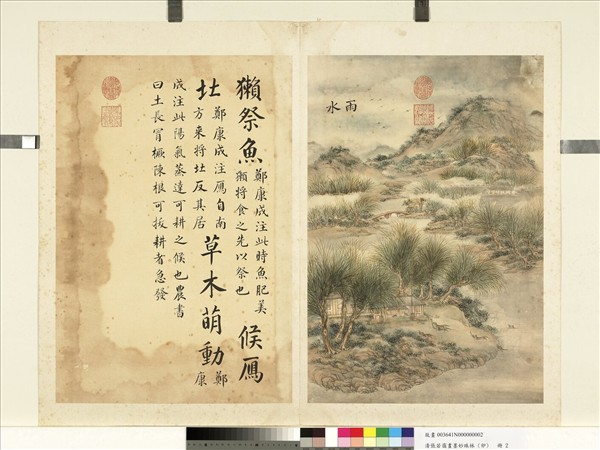 獺祭魚鄭康成注此時魚肥美
獺將食之先以祭也候雁
北鄭康成注雁自南
方來將北反其居草木萌動鄭康
成注此陽氣蒸達可耕之候也農書
曰土長冒橛陳根可拔耕者急發
雨水
故畫 003641N000000002
清張若靄畫墨妙珠林（卯） 冊 2